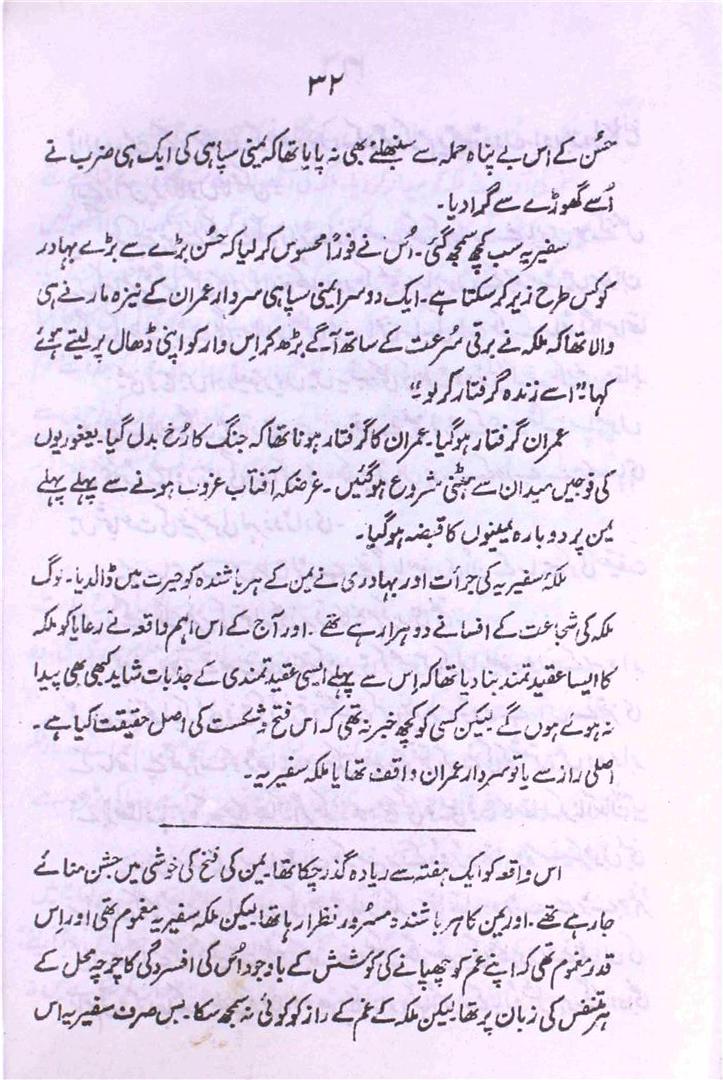 ۳۲
حُسن کے اس بے پناہ حملہ سے سنبھلنے بھی نہ پایا تھا کہ یمنی سپاہی کی ایک ہی ضرب نے
اُسے گھوڑے سے گرا دیا۔
سفیریہ سب کچھ سمجھ گئی۔ اُس نے فوراً محسوس کر لیا کہ حُسن بڑے سے بڑے بہادر
کو کس طرح زیر کر سکتا ہے۔ ایک دوسرا یمنی سپاہی سردار عمران کے نیزہ مارنے ہی
والا تھا کہ ملکہ نے برقی سُرعت کے ساتھ آگے بڑھ کر اِس وار کو اپنی ڈھال پر لیتے ہوئے
کہا۔ ”اسے زندہ گرفتار کر لو۔“
عمران گرفتار ہو گیا۔ عمران کا گرفتار ہونا تھا کہ جنگ کا رُخ بدل گیا۔ یعفوریوں
کی فوجیں میدان سے ہٹنی شروع ہو گئیں۔ غرضکہ آفتاب غروب ہونے سے پہلے پہلے
یمن پر دوبارہ یمنیوں کا قبضہ ہو گیا۔
ملکہ سفیریہ کی جرأت اور بہادری نے یمن کے ہر باشندہ کو حیرت میں ڈالدیا۔ لوگ
ملکہ کی شجاعت کے افسانے دوہرا رہے تھے۔ اور آج کے اس اہم واقعہ نے رعایا کو ملکہ
کا ایسا عقیدتمند بنا دیا تھا کہ اِس سے پہلے ایسی عقیدتمندی کے جذبات شاید کبھی بھی پیدا
نہ ہوئے ہوں گے۔ لیکن کسی کو کچھ خبر نہ تھی کہ اس فتح و شکست کی اصل حقیقت کیا ہے۔
اصلی راز سے یا تو سردار عمران واقف تھا یا ملکہ سفیریہ۔
اس واقعہ کو ایک ہفتہ سے زیادہ گذر چکا تھا۔ یمن کی فتح کی خوشی میں جشن منائے
جا رہے تھے۔ اور یمن کا ہر باشندہ مسرُور نظر آ رہا تھا۔ لیکن ملکہ سفیریہ مغموم تھی اور اِس
قدر مغموم تھی کہ اپنے غم کو چھپانے کی کوشش کے باوجود اُس کی افسردگی کا چرچہ محل کے
ہر متنفس کی زبان پر تھا۔ لیکن ملکہ کے غم کے راز کو کوئی نہ سمجھ سکا۔ بس صرف سفیریہ اس